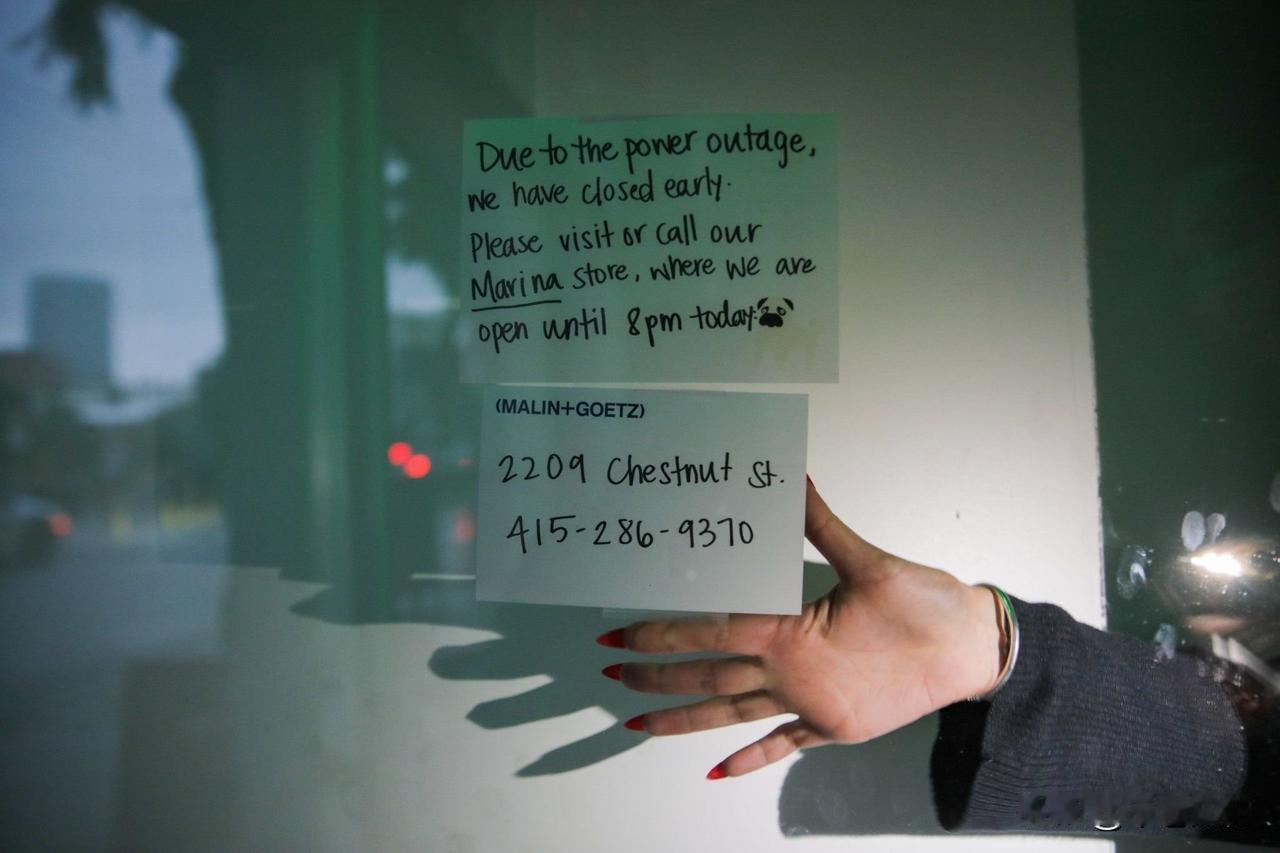 Due to the power outage,
we have closed early.
Please visit or call our
Marina store, where we are
open until 8pm today.
(MALIN+GOETZ)
2209 Chestnut St.
415-286-9370